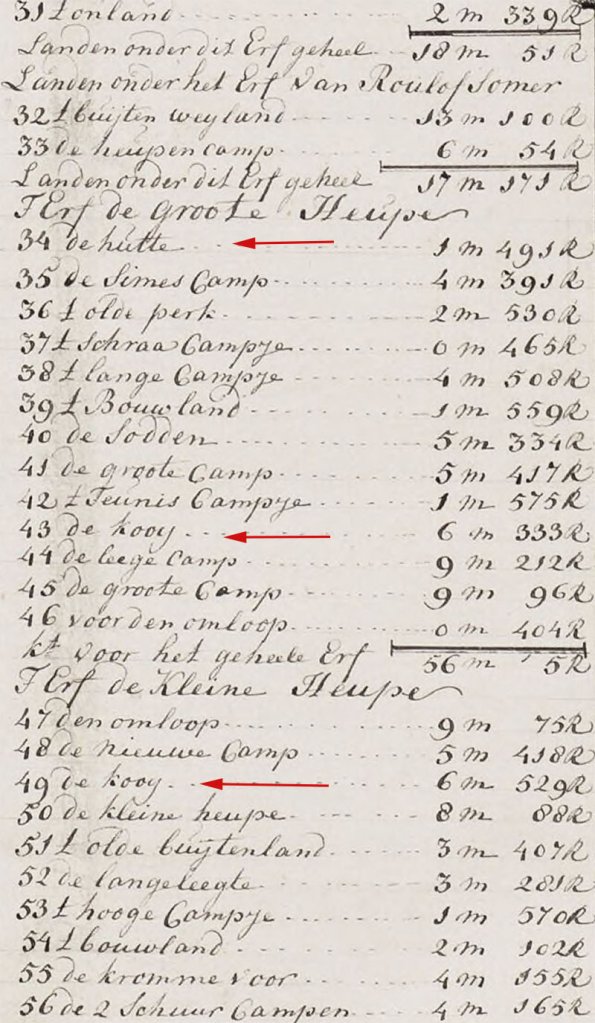 31 t onland 2 m 339 R
Landen onder dit Erf geheel 18 m 51 R
Landen onder het Erf van Roulof Somer
32 t buijten weyland 13 m 100 R
33 de heupen camp 6 m 54 R
Landen onder dit Erf geheel 17 m 171 R
T Erf de Groote Heupe
34 de hutte 1 m 491 R
35 de Simes Camp 4 m 391 R
36 t olde perk 2 m 530 R
37 t Schraa Campje 0 m 465 R
38 t lange Campje 4 m 508 R
39 t Bouwland 1 m 559 R
40 de Sodden 5 m 334 R
41 de groote Camp 5 m 417 R
42 t Teunis Campje 1 m 575 R
43 de kooy 6 m 333 R
44 de leege Camp 9 m 212 R
45 de groote Camp 9 m 96 R
46 voor den omloop 0 m 404 R
kt voor het geheele Erf 56 m 5 R
T Erf de Kleine Heupe
47 den omloop 9 m 75 R
48 de nieuwe Camp 5 m 418 R
49 de kooy 6 m 529 R
50 de kleine heupe 8 m 88 R
51 t olde buijtenland 3 m 407 R
52 de langeleegte 3 m 281 R
53 t hooge Campje 1 m 570 R
54 t bouwland 2 m 102 R
55 de kromme voor 4 m 155 R
56 de 2 Schuur Campen 4 m 165 R